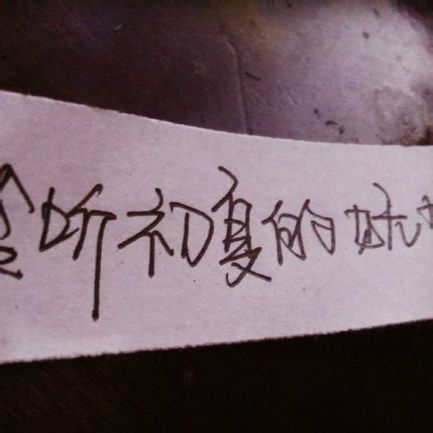 听初夏的妩